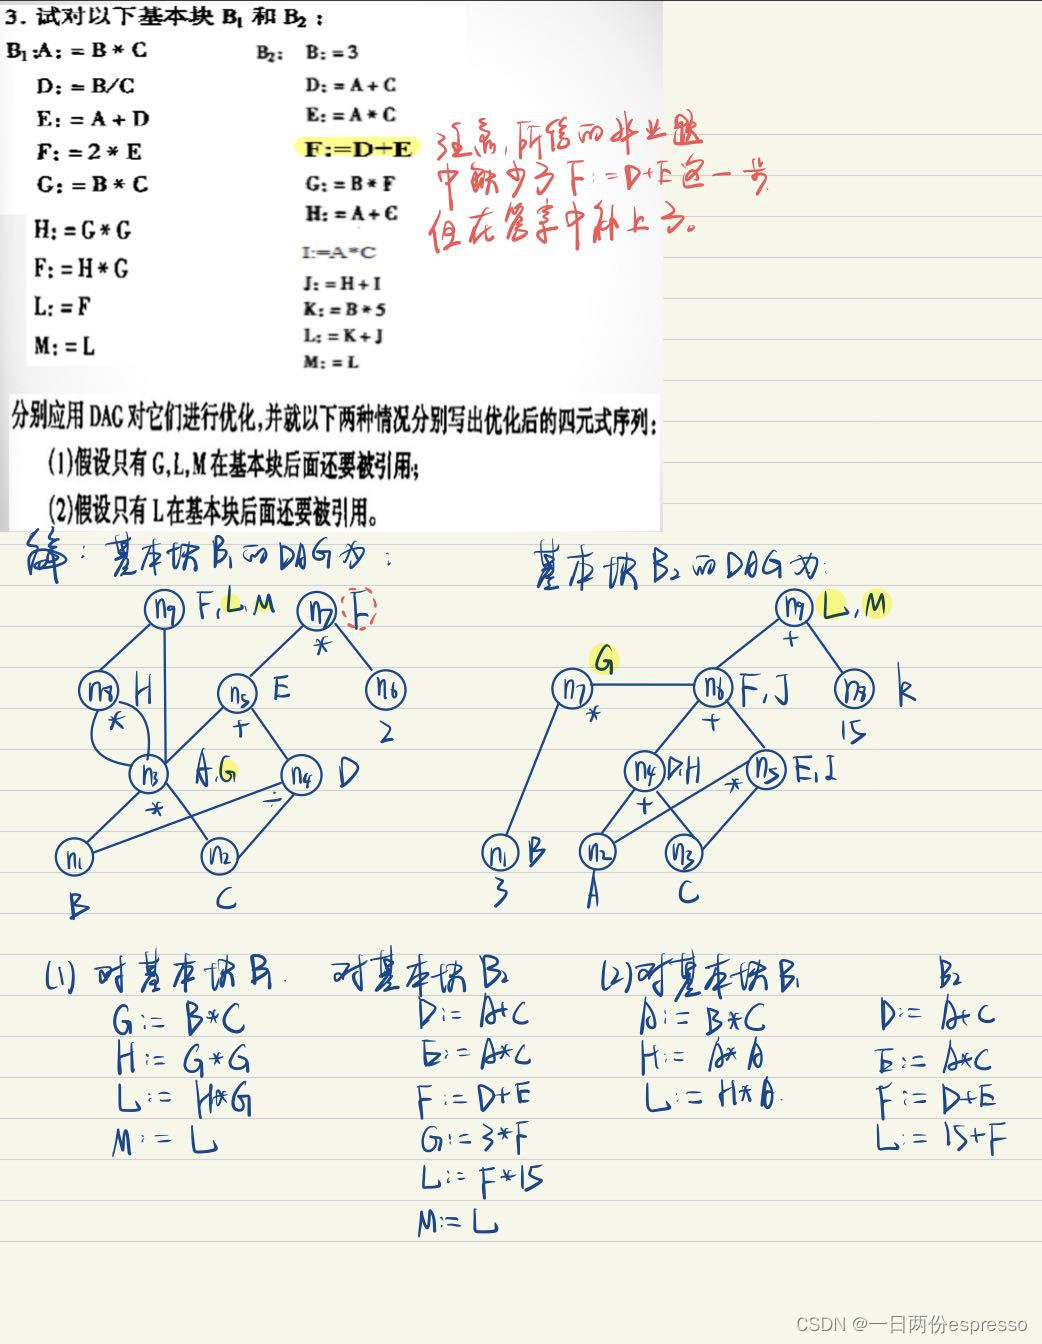 3. 试对以下基本块 B₁ 和 B₂：
B₁:A：= B * C
D：= B/C
E：= A + D
F：= 2 * E
G：= B * C
H：= G * G
F：= H * G
L：= F
M：= L
B₂： B：= 3
D：= A + C
E：= A * C
F:=D+E
G：= B * F
H：= A + C
I:=A*C
J：= H + I
K：= B * 5
L：= K + J
M：= L
注意,所给的作业题
中缺少了 F:=D+E这一步
但在答案中补上了。
分别应用 DAG 对它们进行优化,并就以下两种情况分别写出优化后的四元式序列：
(1)假设只有 G,L,M在基本块后面还要被引用;
(2)假设只有 L在基本块后面还要被引用。
解：基本块B₁的DAG为：
n9 F,L,M
n7 F
*
n8 H
*
n5 E
+
n6
2
n3 A,G
*
n4 D
÷
n1
B
n2
C
基本块B₂的DAG为:
n9 L,M
+
G
n7
*
n6 F,J
+
n8 k
15
n4 D,H
+
n5 E,I
*
n1 B
3
n2
A
n3
C
(1) 对基本块B₁.
G:= B*C
H:= G*G
L:= H*G
M:= L
对基本块B₂
D:= A+C
E:= A*C
F:= D+E
G:= 3*F
L:= F*15
M:= L
(2)对基本块B₁
A:= B*C
H:= A*A
L:= H*A
B₂
D:= A+C
E:= A*C
F:= D+E
L:= 15+F
CSDN @一日两份espresso